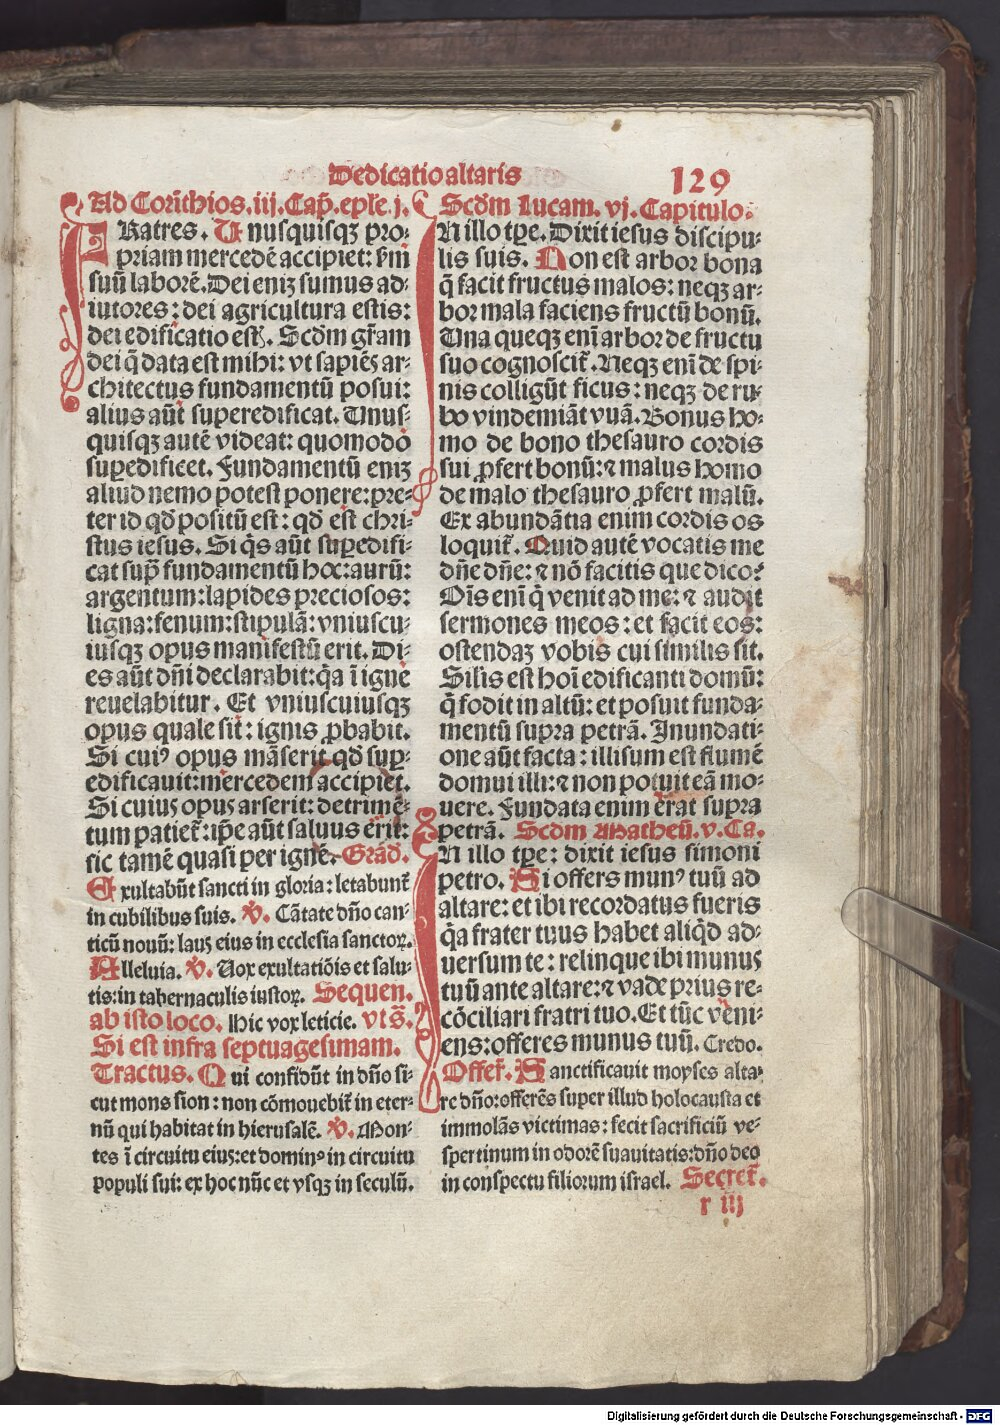 Dedicatio altaris
129
Ad Corīthios. iij. Cap̄. ep̄le. j.
FRatres. Unusquisqꝫ pro-
priam mercedē accipiet: ẜm
suū laborē. Dei eniꝫ sumus ad-
iutores: dei agricultura estis:
dei edificatio estꝭ. Scd̄m gr̄am
dei q̄ data est mihi: vt sapiēs ar-
chitectus fundamentū posui:
alius aūt superedificat. Unus-
quisqꝫ autē videat: quomodo
suꝑedificet. Fundamentū eniꝫ
aliud nemo potest ponere: pre-
ter id qd̄ positū est: qd̄ est chri-
stus iesus. Si q̄s aūt suꝑedifi-
cat sup̄ fundamentū hoc: aurū:
argentum: lapides preciosos:
ligna: fenum: stipulā: vniuscu-
iusqꝫ opus manifestū erit. Di-
es aūt dn̄i declarabit: q̄a ī igne
reuelabitur. Et vniuscuiusqꝫ
opus quale sit: ignis ꝓbabit.
Si cuiꝰ opus māserit qd̄ suꝑ-
edificauit: mercedem accipiet.
Si cuiuꝭ opuꝭ arserit: detrimē-
tum patiet᷑: ip̄e aūt saluus erit:
sic tamē quasi per ignē. Grad̄.
Exultabūt sancti in gloria: letabunt᷑
in cubilibus suis. ℣. Cātate dn̄o can-
ticū nouū: lauꝭ eius in ecclesia sanctoꝝ.
Alleluia. ℣. Uox exultatiōis et salu-
tis: in tabernaculis iustoꝝ. Sequen.
ab isto loco. Hic vox leticie. vt s̄.
Si est infra septuagesimam.
Tractus. Qui confidūt in dn̄o si-
cut mons sion: non cōmouebit᷑ in eter-
nū qui habitat in hierusalē. ℣. Mon-
tes ī circuitu eiuꝭ: et dominꝰ in circuitu
populi sui: ex hoc nūc et vsqꝫ in seculū.
Scd̄m Lucam. vj. Capitulo.
IN illo tꝑe. Dixit iesus discipu-
lis suis. Non est arbor bona
q̄ facit fructus malos: neqꝫ ar-
bor mala faciens fructū bonū.
Una queqꝫ enī arbor de fructu
suo cognoscit᷑. Neqꝫ enī de spi-
nis colligūt ficus: neqꝫ de ru-
bo vindemiāt vuā. Bonus ho-
mo de bono thesauro cordis
sui ꝓfert bonū: ⁊ malus homo
de malo thesauro ꝓfert malū.
Ex abundātia enim cordis os
loquit᷑. Quid autē vocatis me
dn̄e dn̄e: ⁊ nō facitis que dico?
Oīs enī q̄ venit ad me: ⁊ audit
sermones meos: et facit eos:
ostendaꝫ vobis cui similis sit.
Silis est hoī edificanti domū:
q̄ fodit in altū: et posuit funda-
mentū supra petrā. Inundati-
one aūt facta: illisum est flumē
domui illi: ⁊ non potuit eā mo-
uere. Fundata enim erat supra
petrā. Scd̄m Matheū. v. Ca.
IN illo tꝑe: dixit iesus simoni
petro. Si offers munꝰ tuū ad
altare: et ibi recordatus fueris
q̄a frater tuus habet aliq̄d ad-
uersum te: relinque ibi munuꝭ
tuū ante altare: ⁊ vade prius re-
cōciliari fratri tuo. Et tūc veni-
ens: offeres munus tuū. Credo.
Offet᷑. Sanctificauit moyses alta-
re dn̄o: offerēs super illud holocausta et
immolās victimas: fecit sacrificiū ve-
spertinum in odorē suauitatis: dn̄o deo
in conspectu filiorum israel. Secret᷑.
r iij
Digitalisierung gefördert durch die Deutsche Forschungsgemeinschaft - DFG